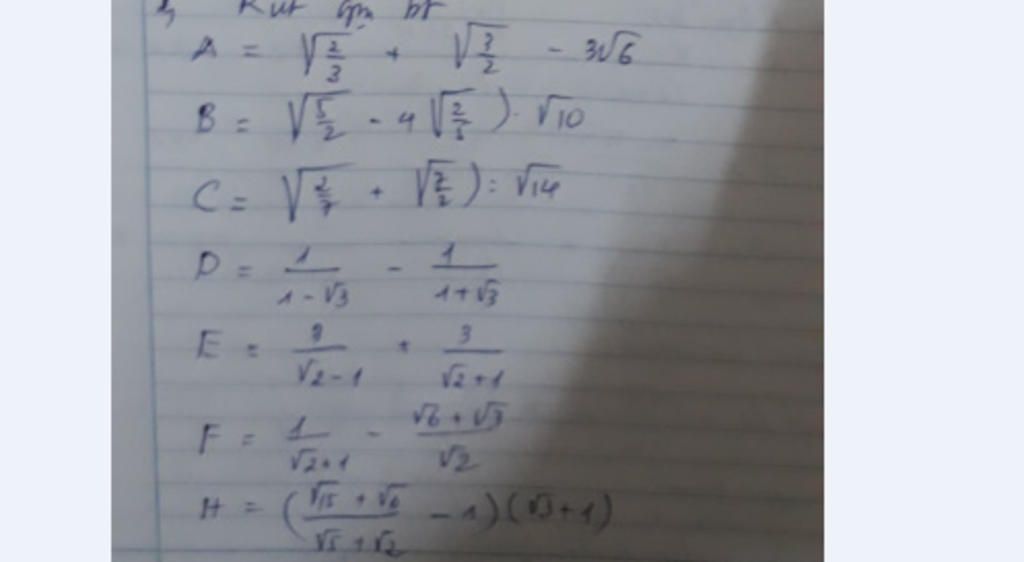 Rút gọn bt
A = √(2/3) + √(3/2) - 3√6
B = √(5/2) - 4√(2/5) ) . √10
C = √(2/7) + √(7/2) ) : √14
D = 1/(1-√3) - 1/(1+√3)
E = /(√2-1) + 3/(√2+1)
F = 1/(√2+1) - (√6+√3)/√2
H = ( (√15+√6)/(√5+√2) - 1)(√3+1)